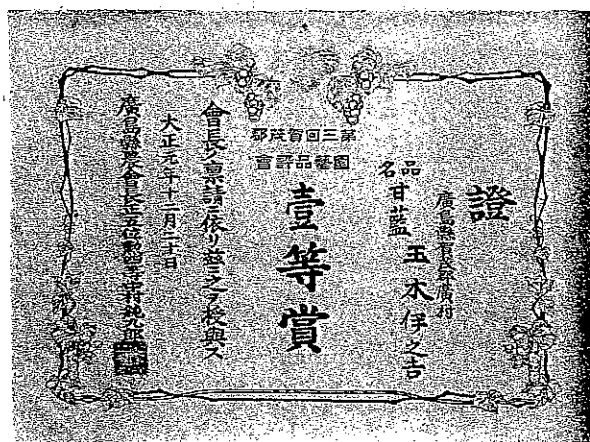 證
廣島縣賀茂郡廣村
玉木伊之吉
品名 甘藍
第三回賀茂郡
園藝品評會
壹等賞
會長ノ稟請ニ依リ茲ニ之ヲ授與ス
大正元年十二月二十日
廣島縣農會長 中村純九郎